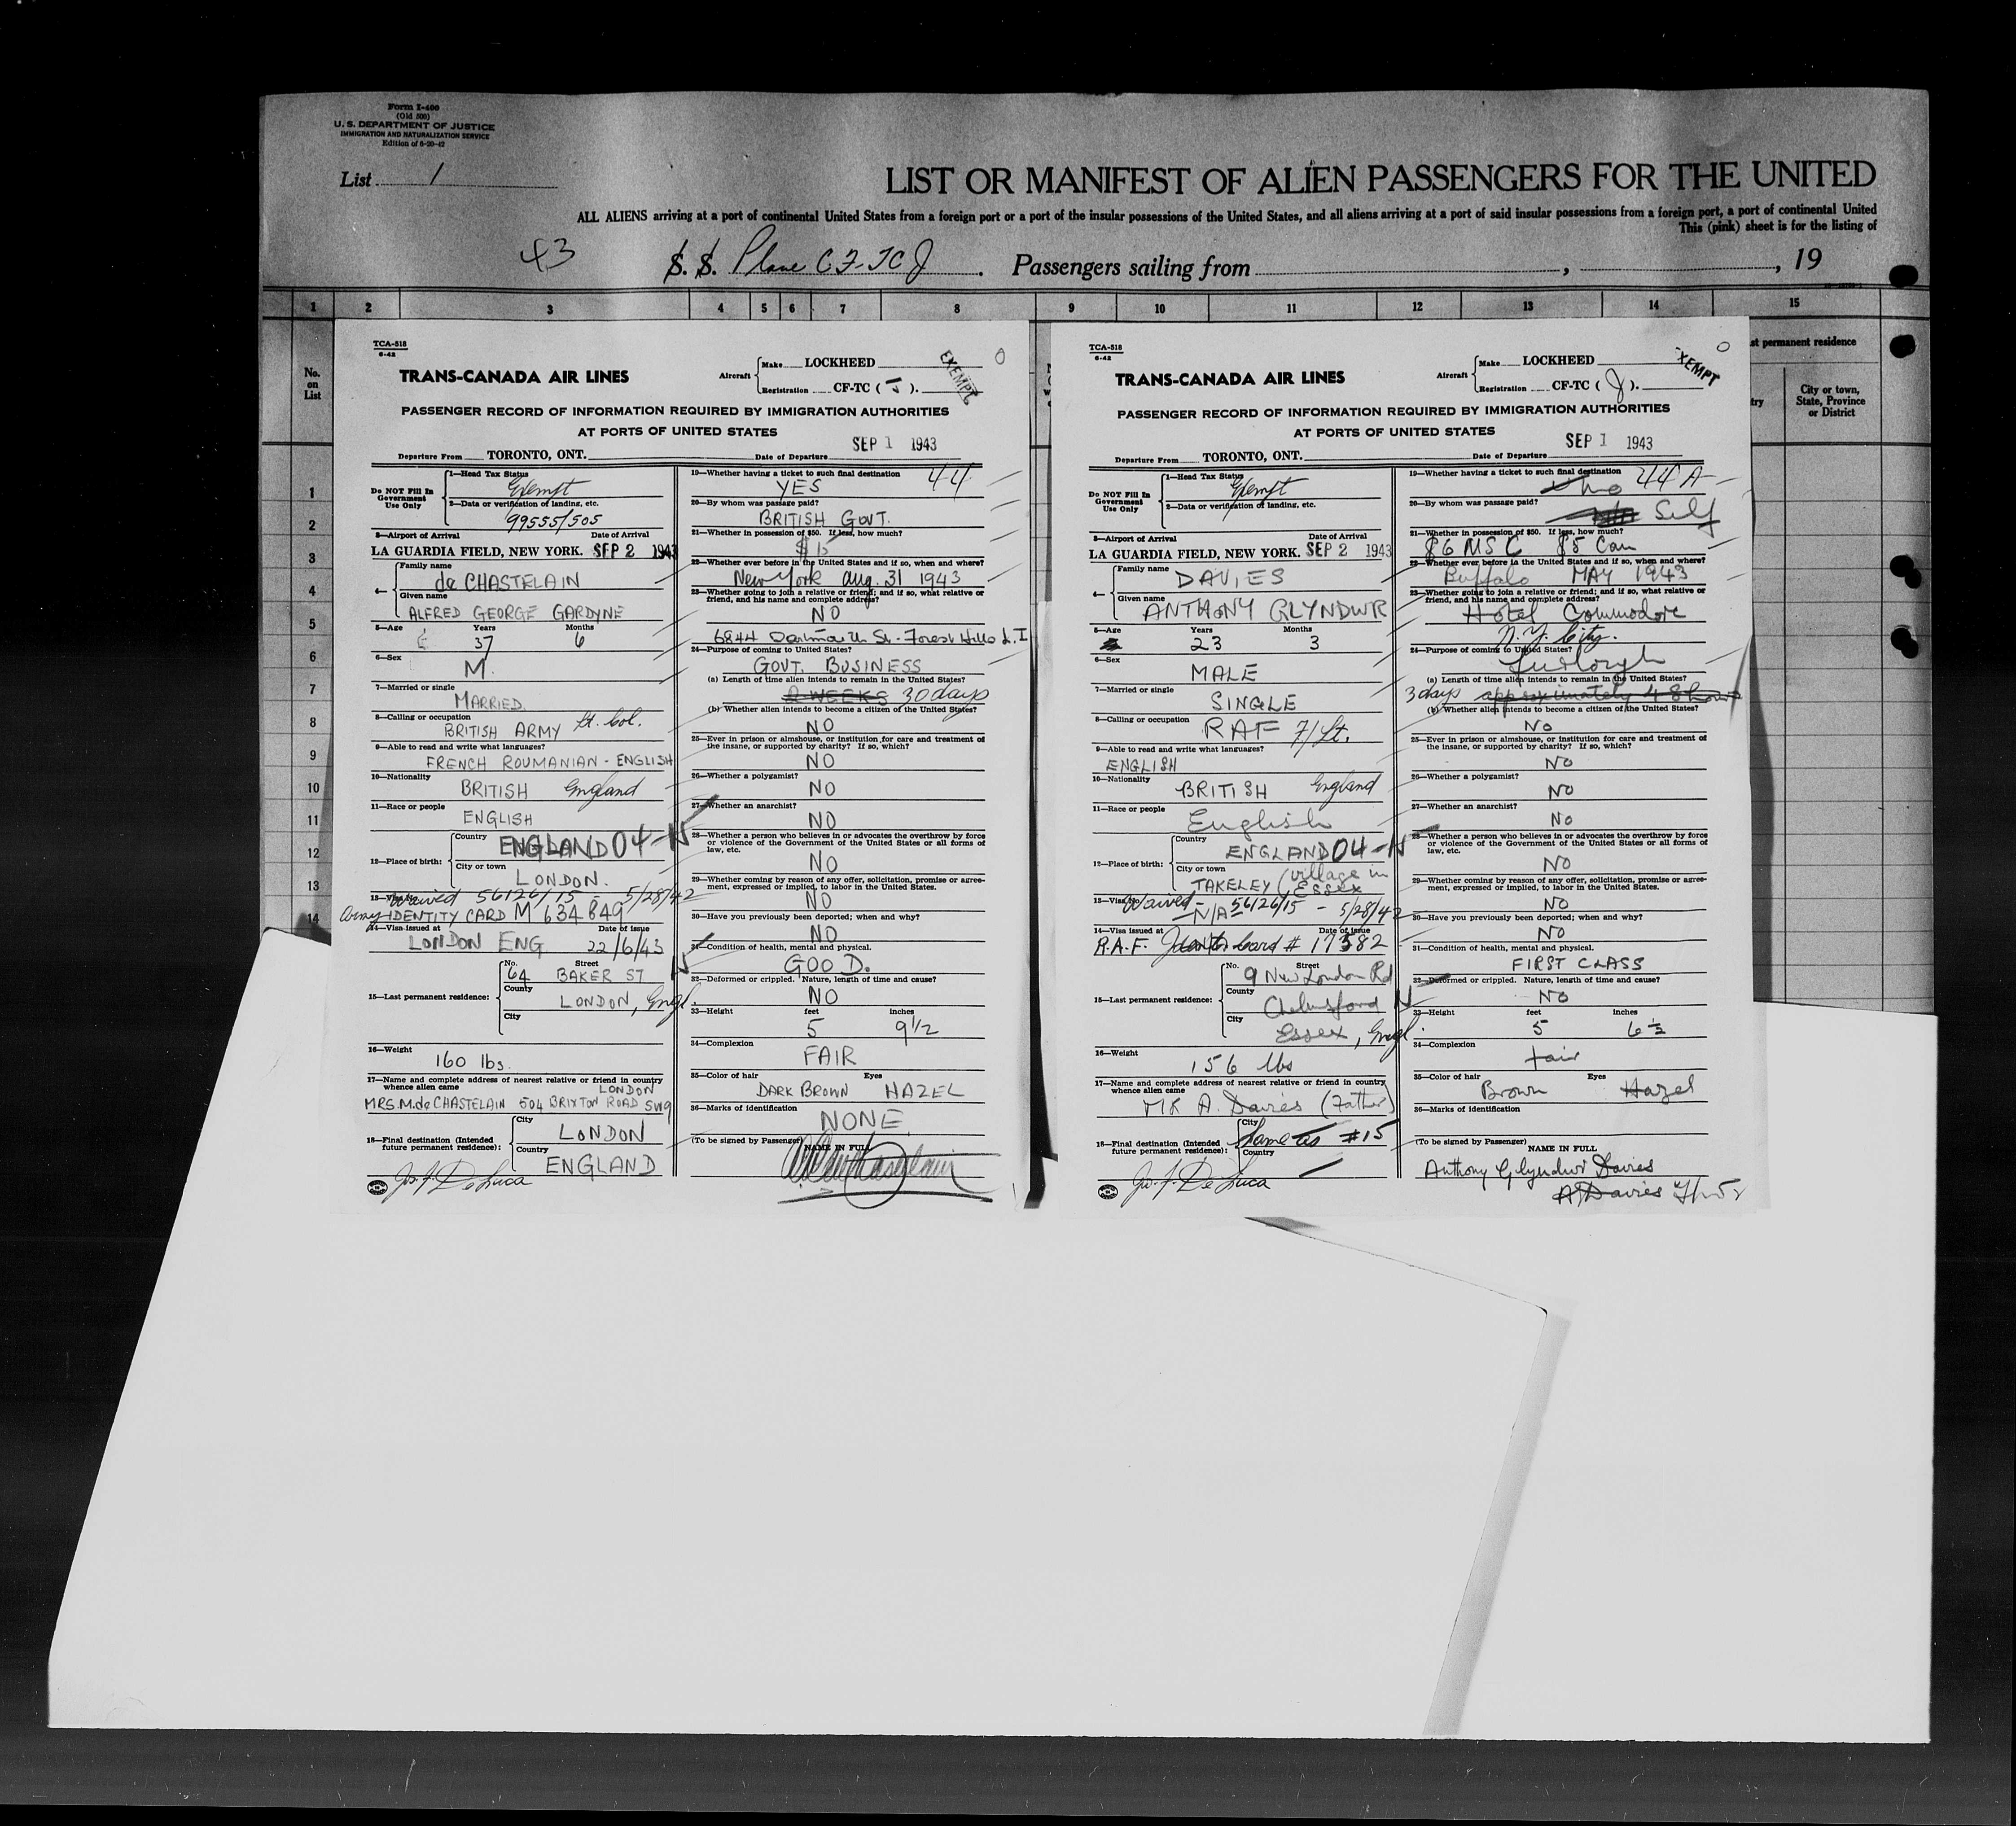 Form I-400
(Old 500)
U. S. DEPARTMENT OF JUSTICE
IMMIGRATION AND NATURALIZATION SERVICE
Edition of 6-20-42
List 1
LIST OR MANIFEST OF ALIEN PASSENGERS FOR THE UNITED
ALL ALIENS arriving at a port of continental United States from a foreign port or a port of the insular possessions of the United States, and all aliens arriving at a port of said insular possessions from a foreign port, a port of continental United
This (pink) sheet is for the listing of
43
S. S. Plane CF-TCJ. Passengers sailing from , , 19
1 2 3 4 5 6 7 8 9 10 11 12 13 14 15
No. on List
st permanent residence
try
City or town, State, Province or District
1
2
3
4
5
6
7
8
9
10
11
12
13
14
TCA-518
6-42
TRANS-CANADA AIR LINES
Aircraft
Make LOCKHEED
Registration CF-TC ( J ).
EXEMPT
PASSENGER RECORD OF INFORMATION REQUIRED BY IMMIGRATION AUTHORITIES
AT PORTS OF UNITED STATES
SEP 1 1943
Departure From TORONTO, ONT. Date of Departure
Do NOT Fill In Government Use Only
1—Head Tax Status
Exempt
2—Data or verification of landing, etc.
99555/505
3—Airport of Arrival Date of Arrival
LA GUARDIA FIELD, NEW YORK. SEP 2 1943
4—
Family name
de CHASTELAIN
Given name
ALFRED GEORGE GARDYNE
5—Age Years Months
37 6
6—Sex
M.
7—Married or single
MARRIED.
8—Calling or occupation
BRITISH ARMY Lt. Col.
9—Able to read and write what languages?
FRENCH ROUMANIAN - ENGLISH
10—Nationality
BRITISH England
11—Race or people
ENGLISH
12—Place of birth:
Country
ENGLAND 04-N
City or town
LONDON.
13—Visa No. Waived 56126/15 - 5/28/42
Army IDENTITY CARD M 634849
14—Visa issued at Date of issue
LONDON ENG. 22/6/43
15—Last permanent residence:
No. Street
64 BAKER ST N
County
LONDON, Engl.
City
16—Weight
160 lbs.
17—Name and complete address of nearest relative or friend in country
whence alien came LONDON
MRS. M. de CHASTELAIN 504 BRIXTON ROAD SW9
18—Final destination (Intended future permanent residence):
City
LONDON
Country
ENGLAND
Jos. J. DeLuca
19—Whether having a ticket to such final destination
YES 44
20—By whom was passage paid?
BRITISH GOVT.
21—Whether in possession of $50. If less, how much?
$15
22—Whether ever before in the United States and if so, when and where?
New York Aug. 31 1943
23—Whether going to join a relative or friend; and if so, what relative or
friend, and his name and complete address?
NO
6844 Dartmouth St. Forest Hills L.I
24—Purpose of coming to United States?
GOVT. BUSINESS
(a) Length of time alien intends to remain in the United States?
2 WEEKS 30 days
(b) Whether alien intends to become a citizen of the United States?
NO
25—Ever in prison or almshouse, or institution for care and treatment of
the insane, or supported by charity? If so, which?
NO
26—Whether a polygamist?
NO
27—Whether an anarchist?
NO
28—Whether a person who believes in or advocates the overthrow by force
or violence of the Government of the United States or all forms of
law, etc.
NO
29—Whether coming by reason of any offer, solicitation, promise or agree-
ment, expressed or implied, to labor in the United States.
NO
30—Have you previously been deported; when and why?
NO
31—Condition of health, mental and physical.
GOOD.
32—Deformed or crippled. Nature, length of time and cause?
NO
33—Height feet inches
5 9 1/2
34—Complexion
FAIR
35—Color of hair Eyes
DARK BROWN HAZEL
36—Marks of identification
NONE
(To be signed by Passenger) NAME IN FULL
TCA-518
6-42
TRANS-CANADA AIR LINES
Aircraft
Make LOCKHEED
Registration CF-TC ( J ).
EXEMPT
PASSENGER RECORD OF INFORMATION REQUIRED BY IMMIGRATION AUTHORITIES
AT PORTS OF UNITED STATES
SEP 1 1943
Departure From TORONTO, ONT. Date of Departure
Do NOT Fill In Government Use Only
1—Head Tax Status
Exempt
2—Data or verification of landing, etc.
3—Airport of Arrival Date of Arrival
LA GUARDIA FIELD, NEW YORK. SEP 2 1943
4—
Family name
DAVIES
Given name
ANTHONY GLYNDWR
5—Age Years Months
23 3
6—Sex
MALE
7—Married or single
SINGLE
8—Calling or occupation
RAF F/Lt.
9—Able to read and write what languages?
ENGLISH
10—Nationality
BRITISH England
11—Race or people
English
12—Place of birth:
Country
ENGLAND 04-N
City or town
TAKELEY (village in Essex
13—Visa No. Waived -
N/A 56126/15 - 5/28/42
14—Visa issued at Date of issue
R.A.F. Identity Card # 17382
15—Last permanent residence:
No. Street
9 New London Rd
County
Chelmsford N
City
Essex, Engl.
16—Weight
156 lbs
17—Name and complete address of nearest relative or friend in country
whence alien came
MR A. Davies (Father)
18—Final destination (Intended future permanent residence):
City
Same as #15
Country
Jos. J. DeLuca
19—Whether having a ticket to such final destination
no 44 A
20—By whom was passage paid?
Self
21—Whether in possession of $50. If less, how much?
$6 $5 Can
22—Whether ever before in the United States and if so, when and where?
Buffalo MAY 1943
23—Whether going to join a relative or friend; and if so, what relative or
friend, and his name and complete address?
Hotel Commodore
N.Y. City.
24—Purpose of coming to United States?
Furlough
(a) Length of time alien intends to remain in the United States?
3 days approximately 48 hours
(b) Whether alien intends to become a citizen of the United States?
No
25—Ever in prison or almshouse, or institution for care and treatment of
the insane, or supported by charity? If so, which?
No
26—Whether a polygamist?
No
27—Whether an anarchist?
No
28—Whether a person who believes in or advocates the overthrow by force
or violence of the Government of the United States or all forms of
law, etc.
No
29—Whether coming by reason of any offer, solicitation, promise or agree-
ment, expressed or implied, to labor in the United States.
No
30—Have you previously been deported; when and why?
No
31—Condition of health, mental and physical.
FIRST CLASS
32—Deformed or crippled. Nature, length of time and cause?
No
33—Height feet inches
5 6 1/2
34—Complexion
fair
35—Color of hair Eyes
Brown Hazel
36—Marks of identification
(To be signed by Passenger) NAME IN FULL
Anthony Glyndwr Davies
A Davies